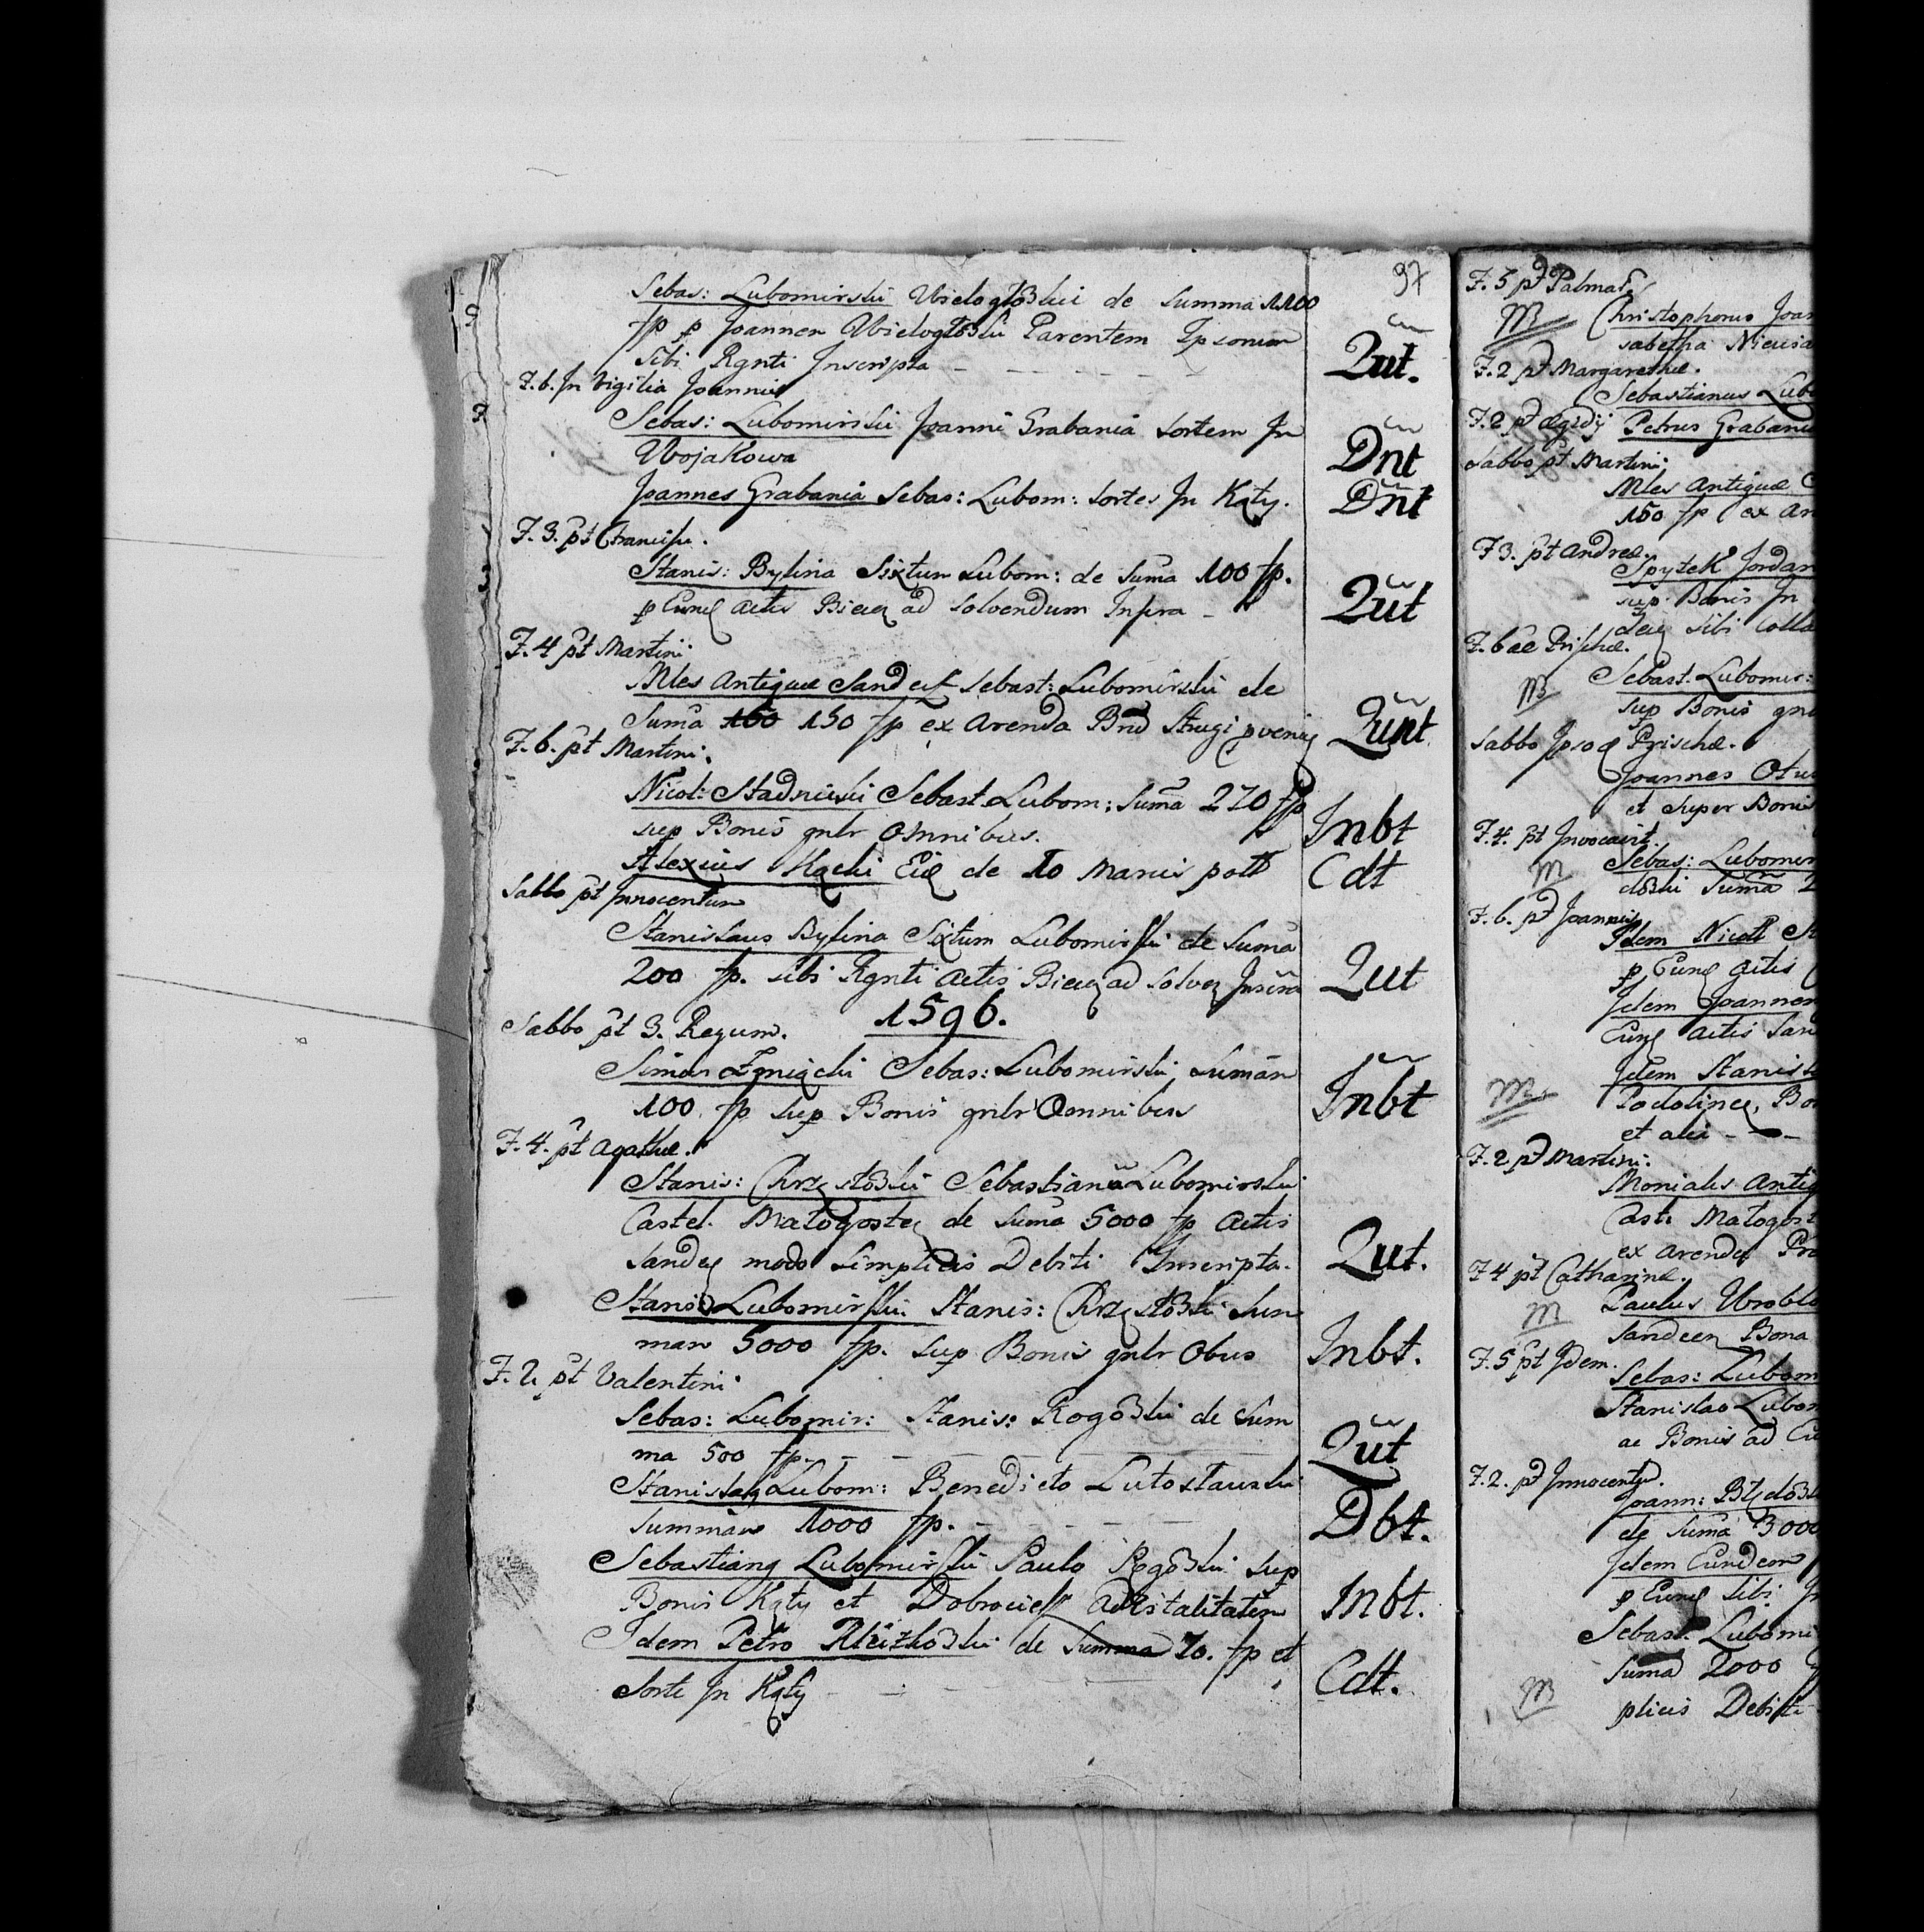 97
Sebas: Lubomirski Wieloglõski de Summa 1100
fp p Joannen Wieloglõski Parentem Ipsorum
sibi Rgnti Inscripta - - - - - Qut.
F. 6. In Vigilia Joannis
Sebas: Lubomirski Joanni Grabania Sortem In Dnt
Wojakowa
Joannes Grabania Sebas: Lubom: Sortes In Kąty. Dnt
F. 3. pt Francis.
Stanis: Bylina Sixtum Lubom: de Suma 100 fp.
p Eund actis Biecz ad solvendum Inscra - Qut
F. 4 pt Martini
Mles Antiquæ Sandecz Sebast: Lubomirski de
Suma 150 fp ex Arenda Bnd Strugi pveni Qunt
F. 6. pt Martini.
Nicol: Stadnicki Sebast. Lubom: Suma 270 fp
sup Bonis gnlr Omnibus. Inbt
Alexius Kącki Eid de 10 Marcis poll Cdt
Sabbo pt Innocentum
Stanislaus Bylina Sixtum Lubomirski de Suma
200 fp. sibi Rgnti actis Biecz ad solven Inscra Qut
1596.
Sabbo pt 3. Regum.
Simon Zmiącki Sebas: Lubomirski Suman
100 fp sup Bonis gnlr Omnibus Inbt
F. 4. pt Agathæ.
Stanis: Chrzęstõski Sebastianũ Lubomirski
Castel. Małogoste de Suma 5000 fp actis
Sande modo Simplicis Debiti Inscripta. Qut.
Stanis Lubomirski Stanis: Chrzęstõski Sum
mam 5000 fp. sup Bonis gnlr Obus Inbt.
F. 2. pt Valentini.
Sebas: Lubomir: Stanis: Rogõski de Sum
ma 500 fp. - - - Qut
Stanislaus Lubom: Benedicto Lutostawski
Summam 1000 fp. - - - Dbt.
Sebastianus Lubomirski Paulo Rogõski sup
Bonis Kąty et Dobrociesz advitalitatem Inbt.
Idem Petro de Summa 70. fp et
Sorte In Kąty - - - Cdt.
F. 5 pt Palmar
M Christophorus Joan
sabetha Niewia
F. 2 pt Margarethæ.
Sebastianus Lubo
F. 2 pt Ægidij Petrus Grabania
Sabbo pt Martini
Mles Antiquæ
150 fp ex Ar
F 3. pt Andreæ.
Spytek Jordan
sup Bonis In
sibi Colla
F. 6 ae Priscæ.
M Sebast. Lubomir:
sup Bonis gnl
Sabbo Ipso Priscæ.
Joannes
et super Bonis
F. 4. pt Invocavit.
M Sebas: Lubomir
dõski Suma 2
F. 6. pt Joannis
Idem Nicol
p Eund actis
Idem Joannem
Eund actis San
Idem Stanis
M Podolinec, Bo
et alia - -
F. 2 pt Martini.
Monialis Antiq
Cast: Małogost
ex Arenda Pr
F 4 pt Catharinæ.
M Paulus Wroblo
Sandecen Bona
F. 5 pt Idem.
Sebas: Lubom
Stanislao Lubom
ac Bonis ad Eu
F. 2. pt Innocentu.
Joann: Błędõs
de Suma 3000
Idem Eundem
p Eund sibi In
Sebast. Lubomi
Suma 2000
M plicis Debiti